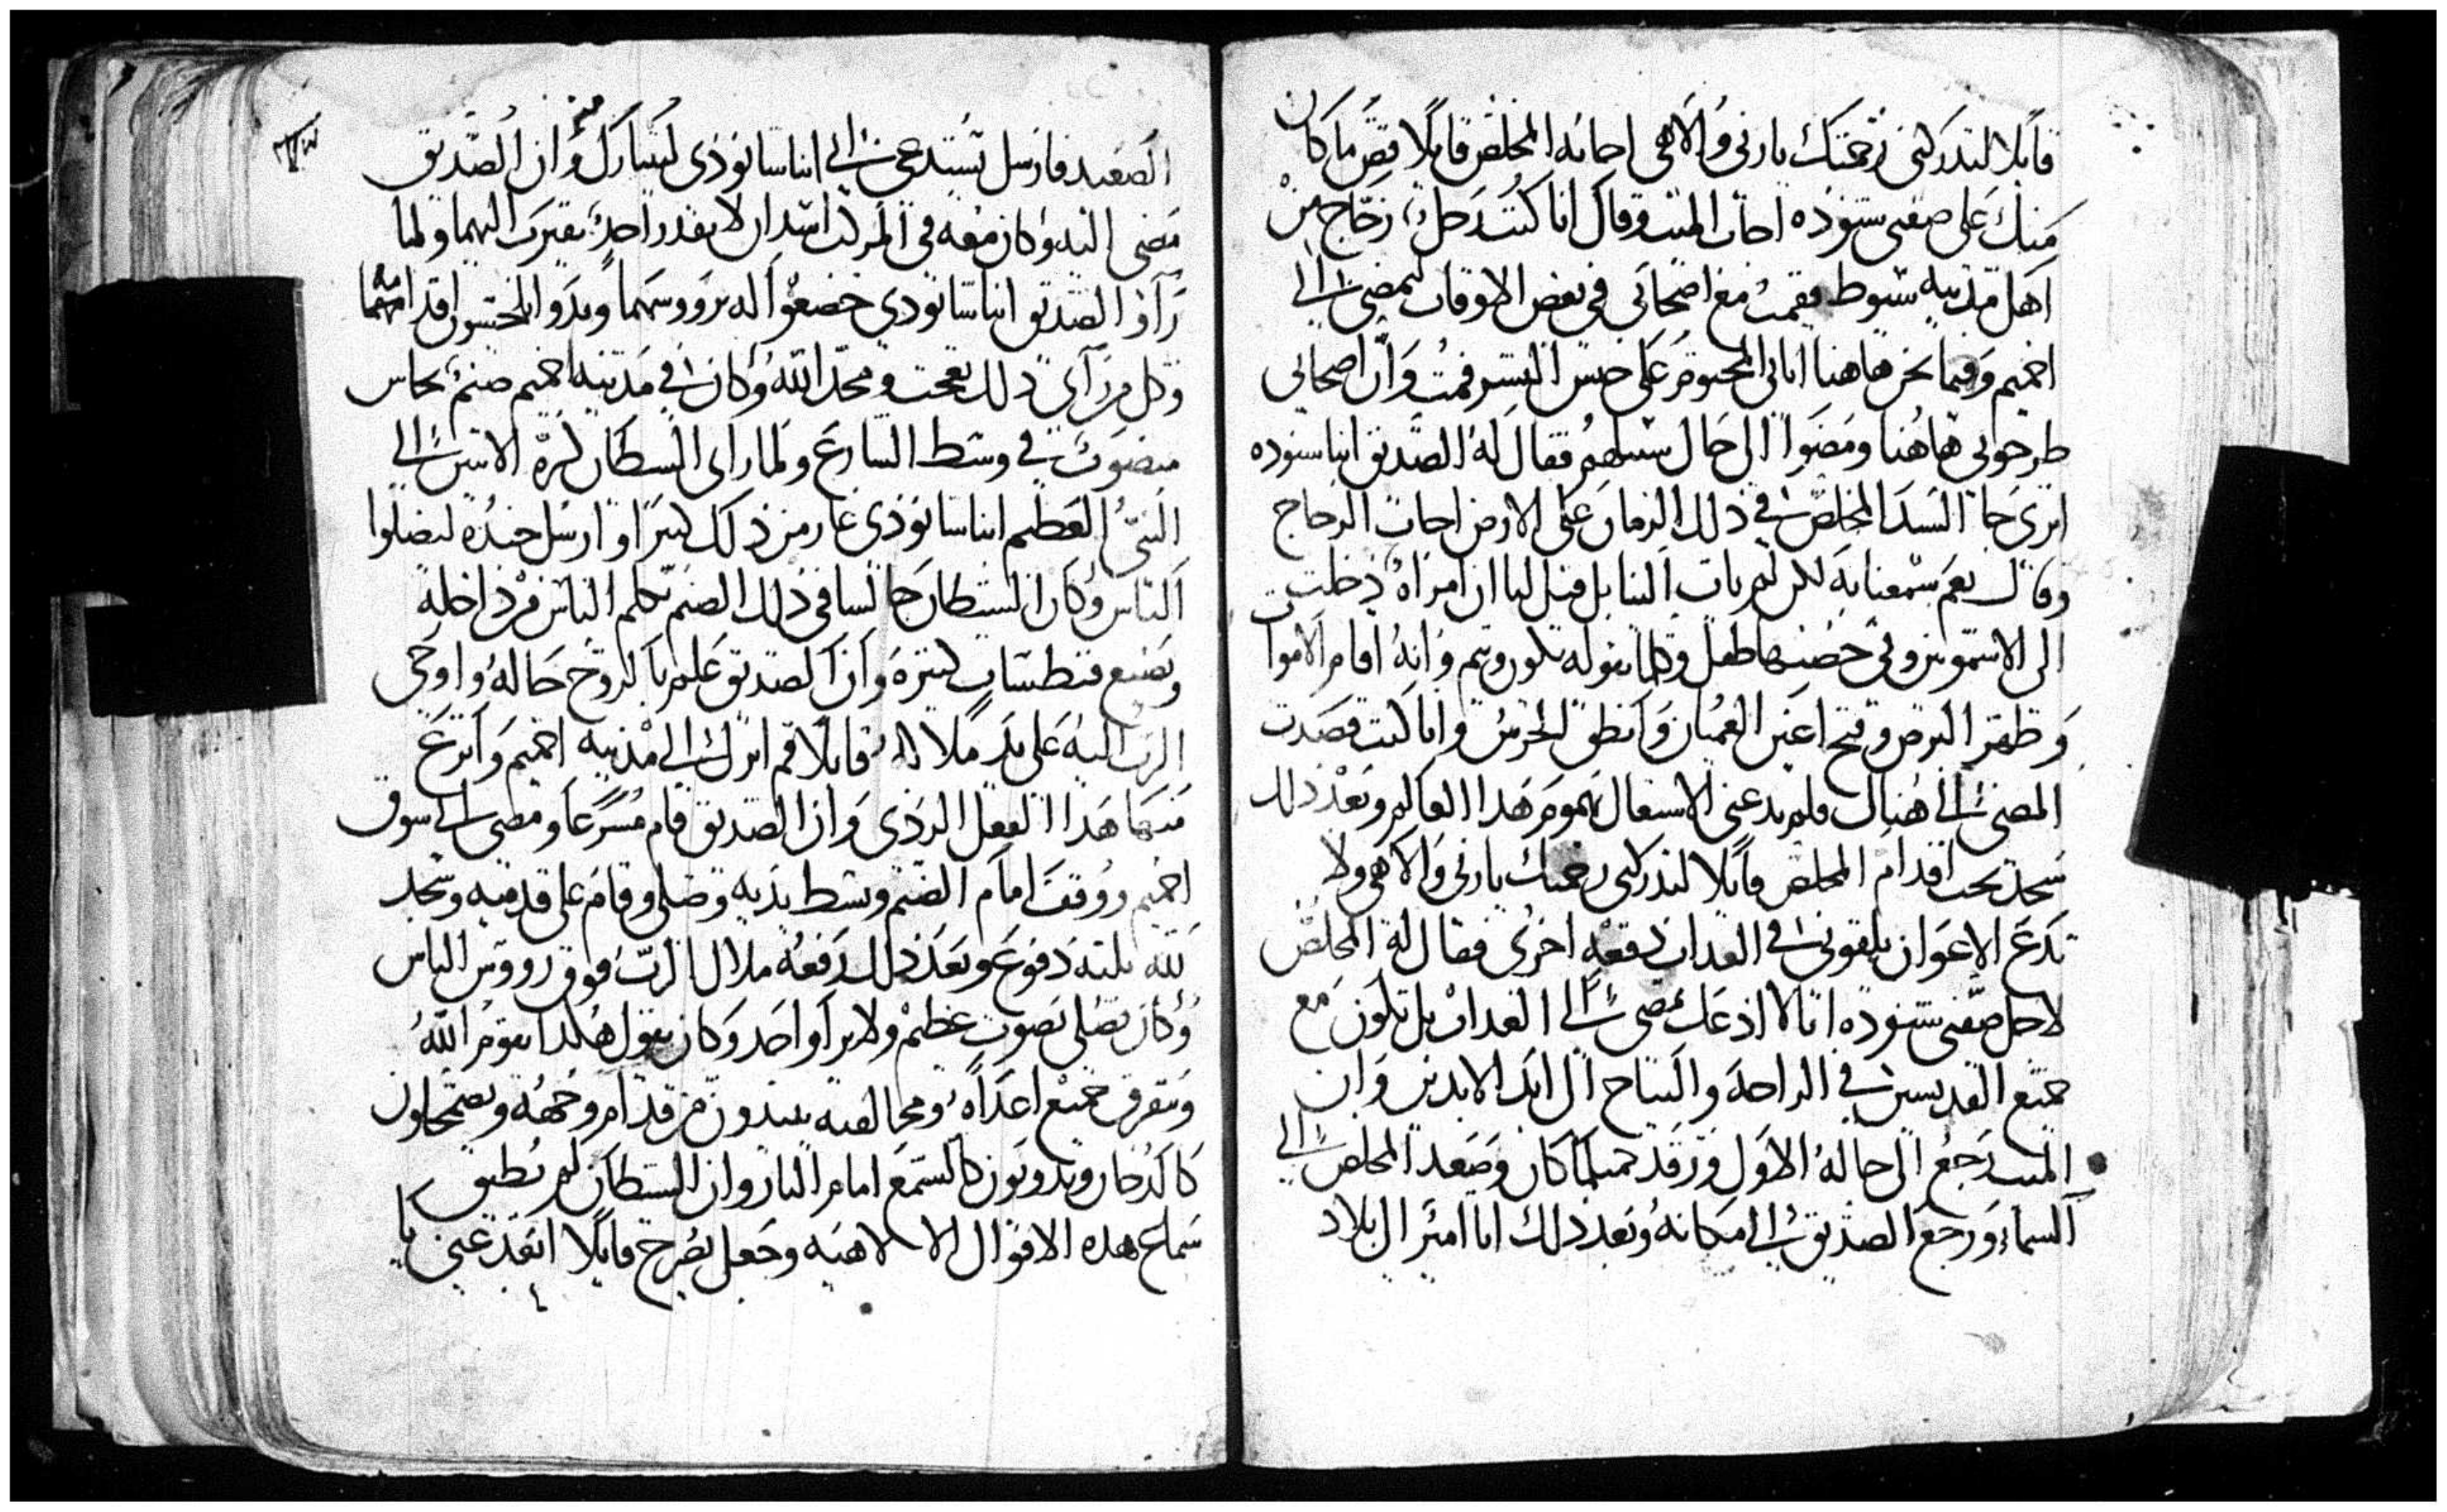 قايلا لتدركني رحمتك يا ربي والاهي اجابه المخلص قايلا قص ما كان
منك على صفيي شنوده اجاب الميت وقال انا كنت رجل زجاج من
اهل مدينه سيوط فقمت مع اصحابي في بعض الاوقات لنمضي الى
اخميم وفيما نحن هاهنا اتاني المحتوم على جنس البشر فمت وان اصحابي
طرحوني هاهنا ومضوا الى حال سبيلهم فقال له الصديق انبا شنوده
اترى جا السيد المخلص في ذلك الزمان على الارض اجاب الزجاج
وقال نعم سمعنا به لكن لم يات الينا بل قيل لنا ان امراه دخلت
الى الاشمونين وفي حضنها طفل وكلما يقوله يكون ويتم وانه اقام الاموات
وطهر البرص وفتح اعين العميان وانطق الخرس وانا كنت قصدت
المضي الى هناك فلم يدعني الاشتغال بهموم هدا العالم وبعد دلك
سجد تحت اقدام المخلص قايلا لتدركني رحمتك يا ربي والاهي ولا
تدع الاعوان يلقوني في العداب دفعه اخرى فقال له المخلص
لاجل صفيي شنوده انا لا ادعك تمضي الى العداب بل تكون مع
جميع القديسين في الراحه والنياح الى ابد الابدين وان
الميت رجع الى حاله الاول ورقد مثلما كان وصعد المخلص الى
السماء ورجع الصديق الى مكانه وبعد دلك اتا امير الى بلاد
الصعيد فارسل تستدعي الى انبا شانوذي ليتبارك منه وان الصديق
مضى اليه وكان معه في المركب اسدان لا يقدر احد يقترب اليهما ولما
راوا الصديق انبا شانودي خضعوا له برووسهما وبدوا يلحسون اقدامه
وكل من راى دلك تعجب ومجد الله وكان في مدينه اخميم صنم نحاس
منصوب في وسط الشارع ولما راى الشيطان كثرة الاتين الى
النبي العظيم انبا شانوذي غار من ذلك كثيرا وارسل جنده ليضلوا
الناس وكان الشيطان جالسا في ذلك الصنم يكلم الناس من داخله
ويصنع فنطسيات كثيره وان الصديق علم بالروح حاله واوحى
الرب اليه على يد ملاكه قايلا قم انزل الى مدينه اخميم وانزع
منها هدا الفعل الردي وان الصديق قام مسرعا ومضى الى سوق
اخميم ووقف امام الصنم وبسط يديه وصلى وقام على قدميه وسجد
لله ثلثه دفوع وبعد ذلك رفعه ملاك الرب فوق رووس الناس
وكان يصلي بصوت عظيم ولا يراه احد وكان يقول هكدا يقوم الله
ويتفرق جميع اعداه ومخالفيه يبيدون من قدام وجهه ويضمحلون
كالدخان ويدوبون كالشمع امام النار وان الشيطان لم يطيق
سماع هده الاقوال الالاهيه وجعل يصرخ قايلا ابعد عني يا